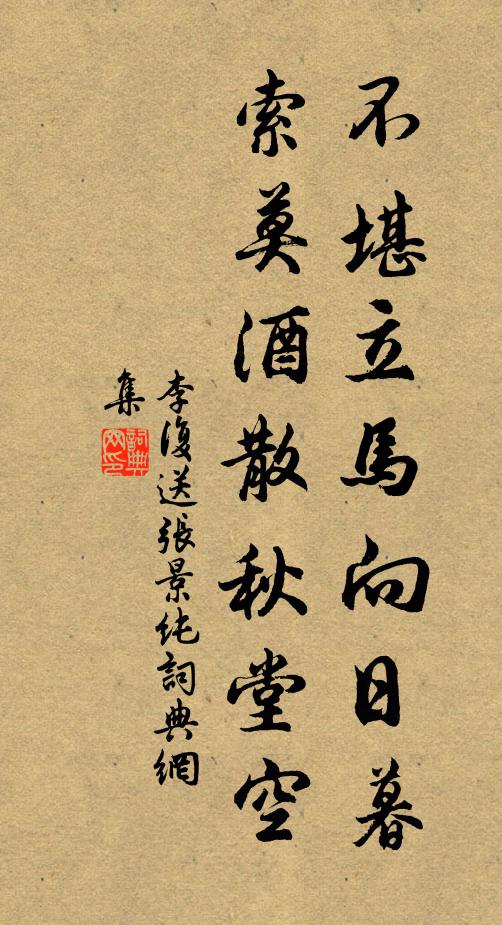 不堪立馬向日暮
索莫酒散秋堂空
李復送張景純詞典網
集
詞典网印